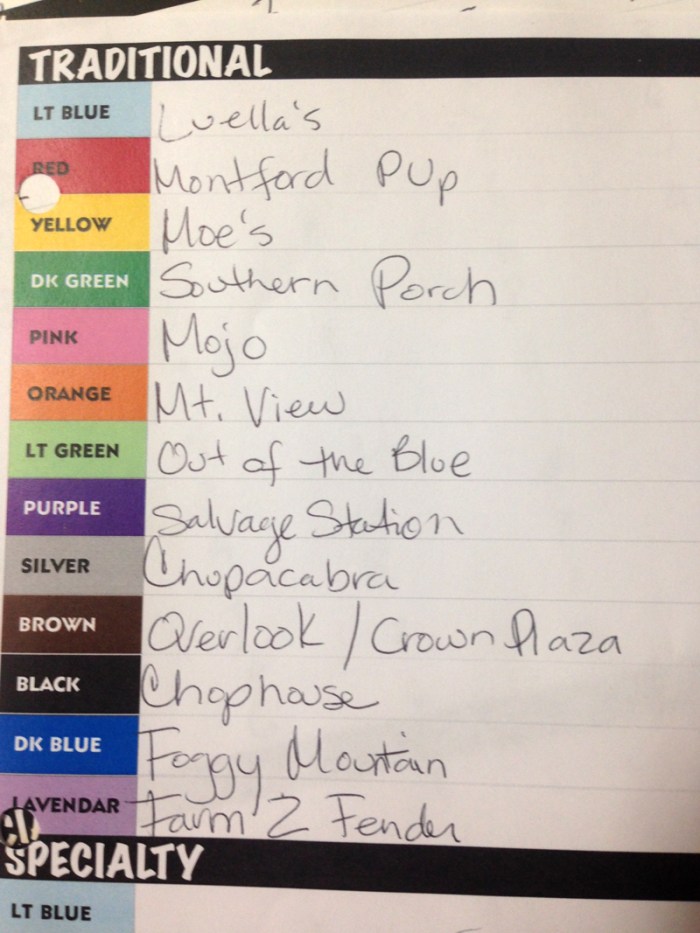 TRADITIONAL
LT BLUE Luella's
RED Montford PUp
YELLOW Moe's
DK GREEN Southern Porch
PINK Mojo
ORANGE Mt. View
LT GREEN Out of the Blue
PURPLE Salvage Station
SILVER Chupacabra
BROWN Overlook / Crown Plaza
BLACK Chophouse
DK BLUE Foggy Mountain
LAVENDAR Farm 2 Fender
SPECIALTY
LT BLUE